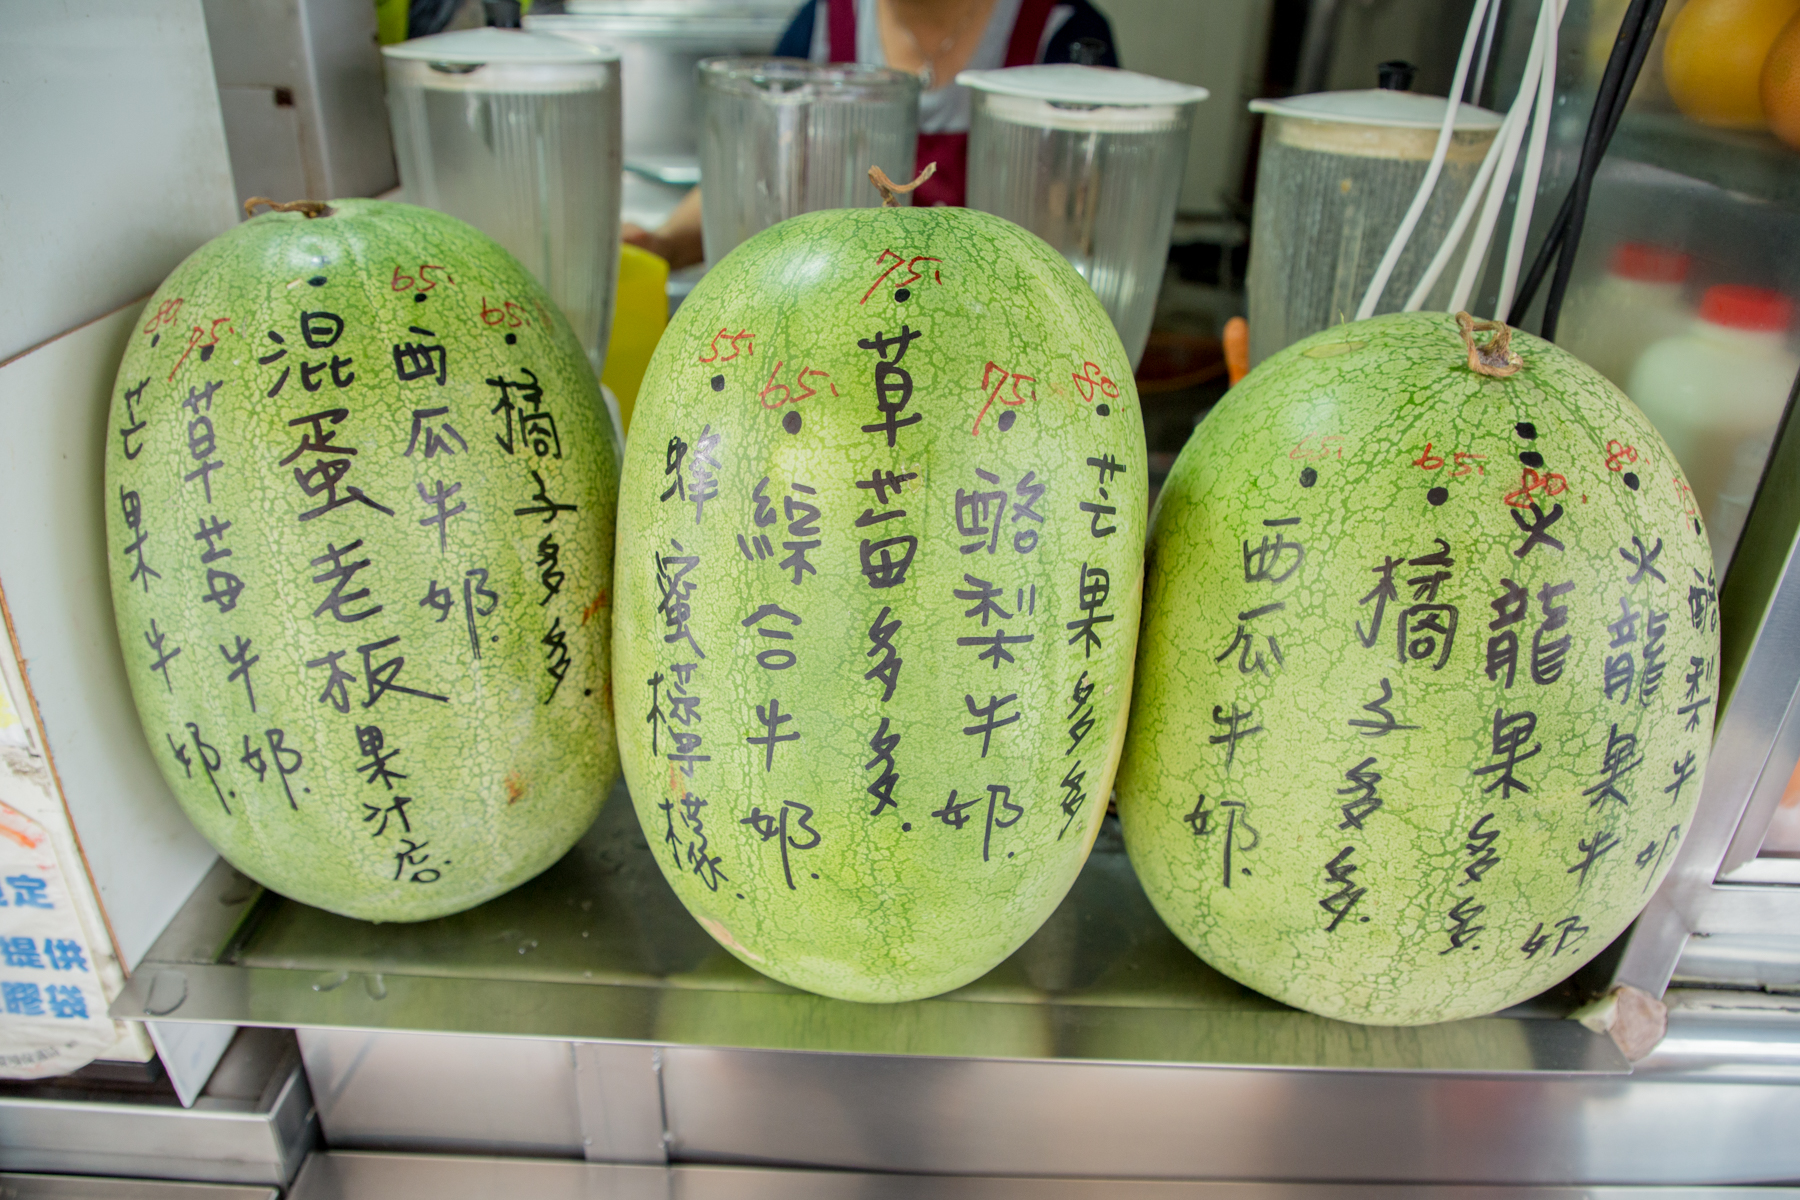 80.
芒果牛奶.
75.
草莓牛奶.
混蛋老板果汁店.
65.
西瓜牛奶.
65.
橘子多多.
55.
蜂蜜檸檬.
65.
綜合牛奶.
75.
草莓多多.
75.
酪梨牛奶.
80.
芒果多多
65.
西瓜牛奶.
65.
橘子多多.
80.
火龍果多多.
80.
火龍果牛奶.
酪梨牛奶
定
提供
膠袋